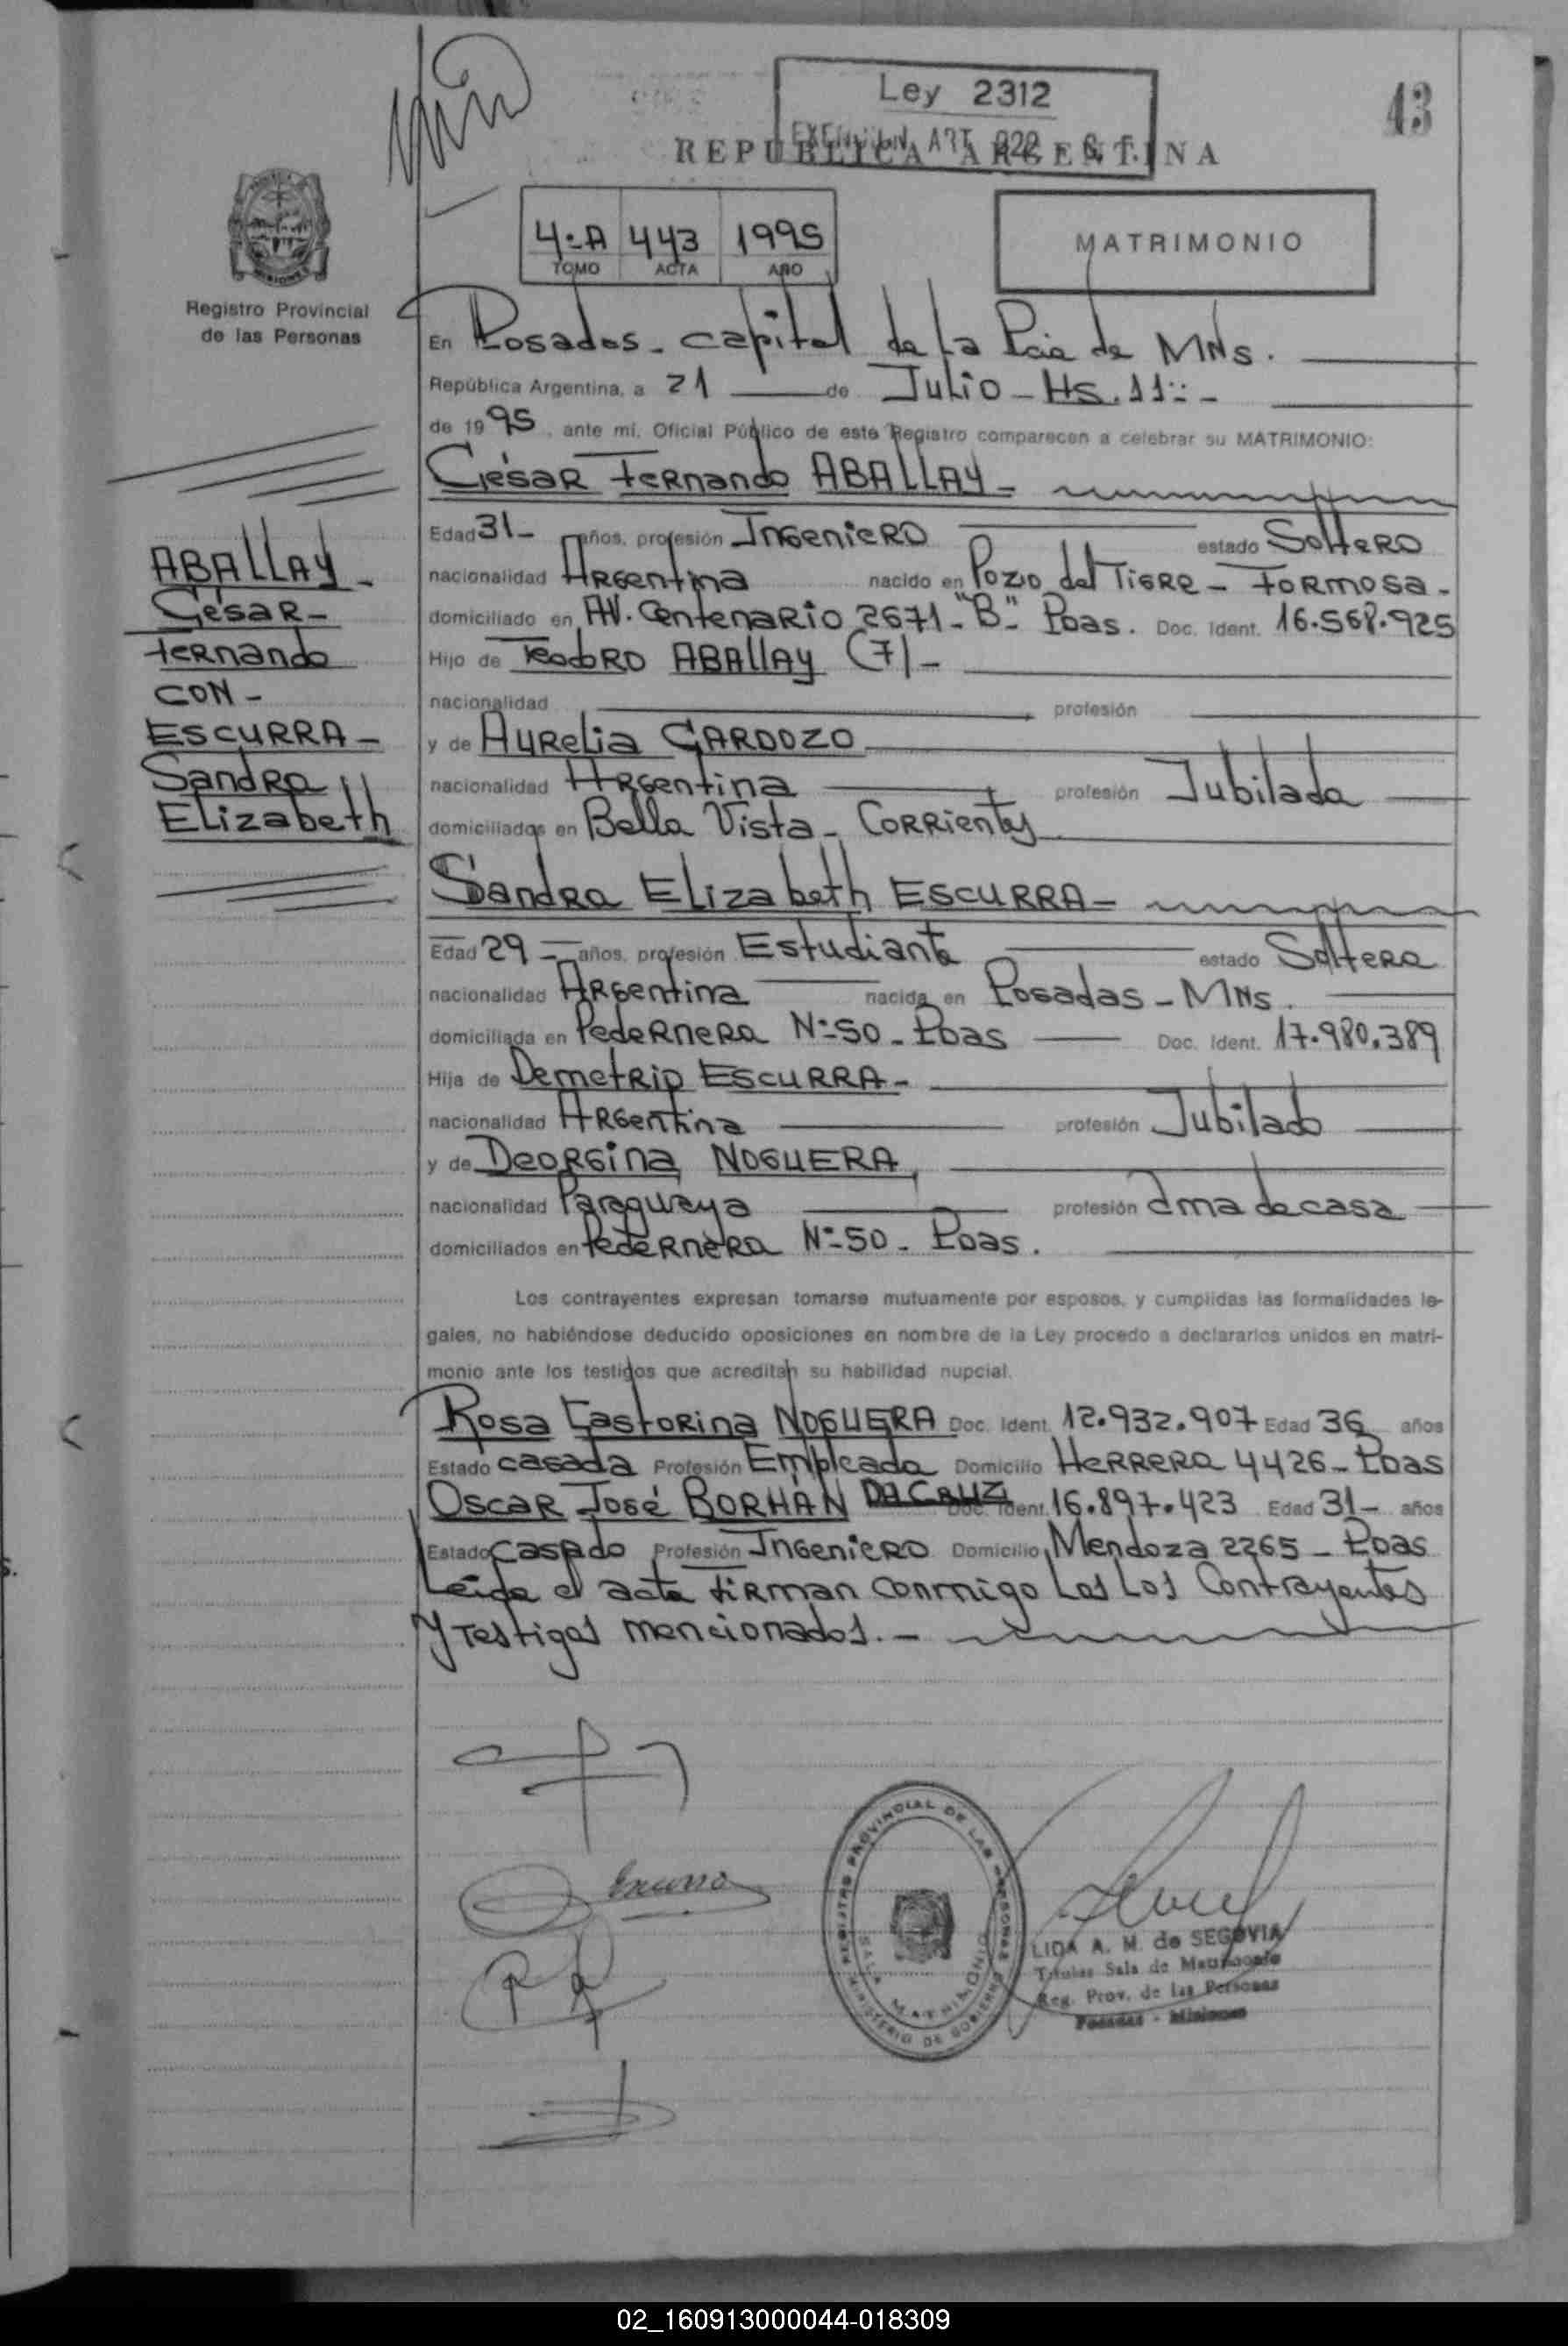 Ley 2312
43
REPUBLICA ARGENTINA
4=A 443 1995
TOMO ACTA AÑO
MATRIMONIO
Registro Provincial
de las Personas
En Posadas - capital de la Pcia de MNs.
República Argentina, a 21 de Julio - Hs. 11:: -
de 1995, ante mí, Oficial Público de este Registro comparecen a celebrar su MATRIMONIO:
César Fernando ABALLAY -
Edad 31 - años, profesión Ingeniero estado Soltero
nacionalidad Argentina nacido en Pozo del Tigre - Formosa -
domiciliado en AV. Centenario 2671 - "B" - Poas. Doc. Ident. 16.568.925
Hijo de Teodoro ABALLAY (7) -
nacionalidad profesión
y de Aurelia CARDOZO
nacionalidad Argentina profesión Jubilada
domiciliados en Bella Vista - Corrientes
Sandra Elizabeth ESCURRA -
Edad 29 - años, profesión Estudiante estado Soltera
nacionalidad Argentina nacida en Posadas - MNs.
domiciliada en Pedernera N=50 - Poas Doc. Ident. 17.980.389
Hija de Demetrio ESCURRA -
nacionalidad Argentina profesión Jubilado
y de Deorgina NOGUERA,
nacionalidad Paraguaya profesión ama de casa
domiciliados en Pedernera N=50 - Poas.
ABALLAY -
César -
Fernando
CON -
ESCURRA -
Sandra
Elizabeth
Los contrayentes expresan tomarse mutuamente por esposos, y cumplidas las formalidades le-
gales, no habiéndose deducido oposiciones en nombre de la Ley procedo a declararlos unidos en matri-
monio ante los testigos que acreditan su habilidad nupcial.
Rosa Castorina NOGUERA Doc. Ident. 12.932.907 Edad 36 años
Estado casada Profesión Empleada Domicilio Herrera 4426 - Poas
Oscar José BORHAN DACRUZ Doc. Ident. 16.897.423 Edad 31 - años
Estado Casado Profesión Ingeniero Domicilio Mendoza 2265 - Poas
Leída el acta firman conmigo Los Los Contrayentes
y Testigos mencionados. -
REGISTRO PROVINCIAL DE LAS PERSONAS
SALA MATRIMONIO
MINISTERIO DE GOBIERNO
LIDA A. M. de SEGOVIA
Titular Sala de Matrimonio
Reg. Prov. de las Personas
Posadas - Misiones
02_160913000044-018309